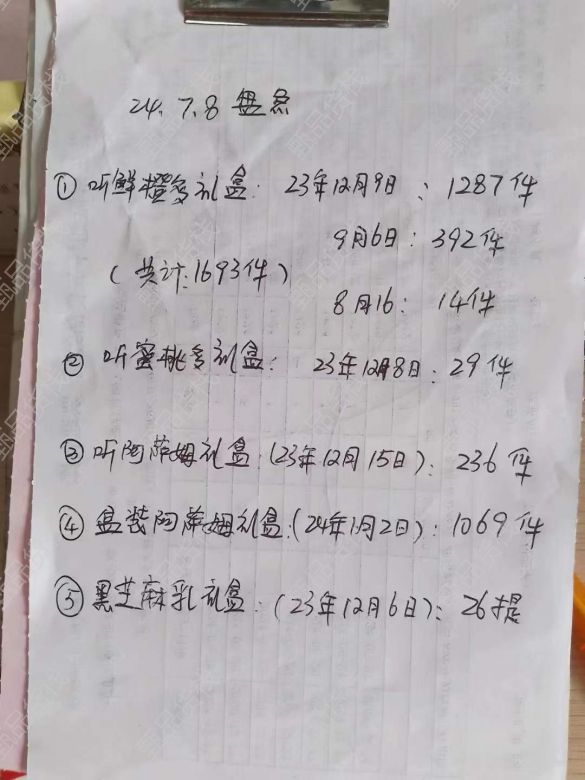 24.7.8 盘点
① 听鲜橙多礼盒：23年12月9日：1287件
9月6日：392件
（共计：1693件）
8月16：14件
② 听蜜桃多礼盒：23年12月8日：29件
③ 听阿萨姆礼盒：(23年12月15日)：236件
④ 盒装阿萨姆礼盒：(24年1月2日)：1069件
⑤ 黑芝麻乳礼盒：(23年12月6日)：26提